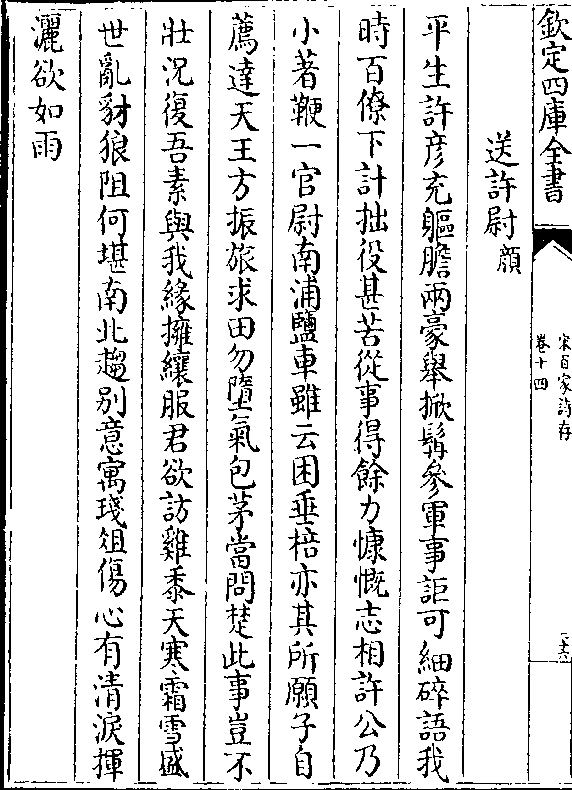 欽定四庫全書
宋百家詩存
卷十四
送許尉顔
平生許彦充軀膽兩豪舉掀髯參軍事詎可細碎語我
時百僚下計拙役甚苦從事得餘力慷慨志相許公乃
小著鞭一官尉南浦鹽車雖云困垂棓亦其所願子自
薦達天王方振旅求田勿墮氣包茅當問楚此事豈不
壯況復吾素與我緣擁纕服君欲訪雞黍天寒霜雪盛
世亂豺狼阻何堪南北趨别意寓琖俎傷心有清淚揮
灑欲如雨